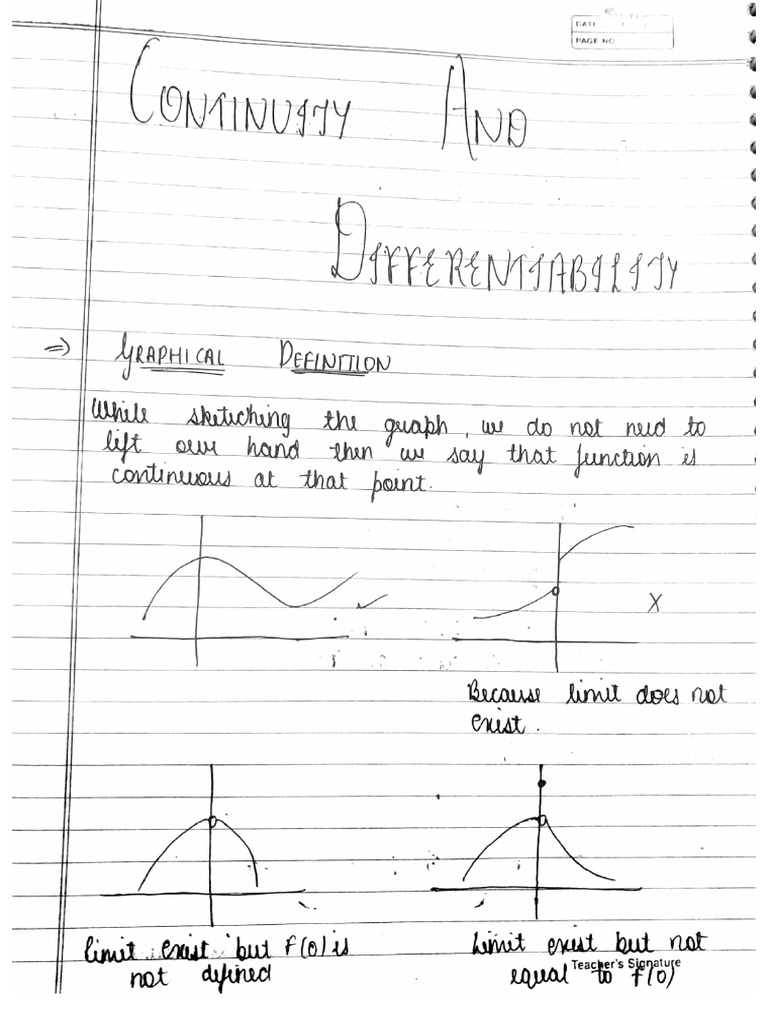 DATE
PAGE NO
CONTINUITY AND
DIFFERENTIABILITY
=> GRAPHICAL DEFINITION
While sketching the graph, we do not need to
lift our hand then we say that function is
continuous at that point.
✓
X
Because limit does not
exist.
limit exist but f(0) is
not defined
Limit exist but not
equal to f(0)
Teacher's Signature